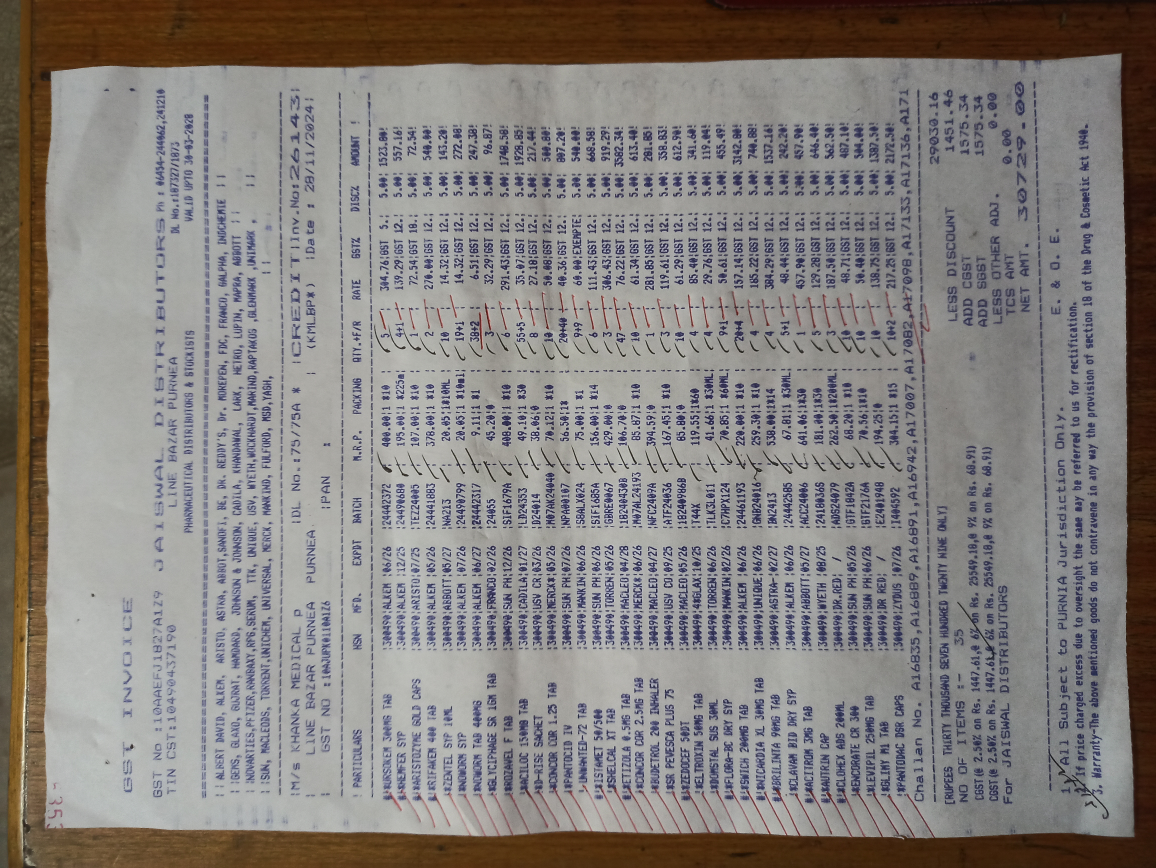 GST INVOICE
GST No :10AAEFJ1827A1Z9 JAISWAL DISTRIBUTORS Ph : 06454-244062,241210
TIN CST:10490437190 LINE BAZAR PURNEA DL No.:107327/1073
PHARMACEUTICAL DISTRIBUTORS & STOCKISTS VALID UPTO 30-03-2028
M/s KHANKA MEDICAL p DL No.:75/75A * CREDIT Inv.No:26143
LINE BAZAR PURNEA PURNEA (KMLBP*) Date : 28/11/2024
GST NO :10AJUPK0110A1Z6 PAN :
PARTICULARS HSN MFD. EXPDT BATCH M.R.P. PACKING QTY.+F/R RATE GST% DISC% AMOUNT
URSOKEM 300MG TAB 300490 ALKEM 06/26 24442372 400.00 1 *10 5 304.76 GST 5. 5.00 1523.80
HEMFER SYP 300490 ALKEM 12/25 24490680 195.00 1 4+1 139.29 GST 12. 5.00 557.16
ARISTOZYME GOLD CAPS 300490 ARISTO 07/25 TEZ24005 107.00 1 *10 1 72.54 GST 18. 5.00 72.54
RIFAKEM 400 TAB 300490 ALKEM 05/26 24441883 378.00 1 *10 2 270.00 GST 12. 5.00 540.00
ZENTEL SYP 10ML 300490 ABBOTT 05/27 NA213 20.05 1 *10ML 10 14.32 GST 12. 5.00 143.20
NOWORM SYP 300490 ALKEM 07/26 24490799 20.05 1 19+1 14.32 GST 12. 5.00 272.08
NOWORM TAB 400MG 300490 ALKEM 06/27 24442317 9.11 1 *1 38+2 6.51 GST 12. 5.00 247.38
GLYCIPHAGE SR 1GM TAB 300490 FRANCO 02/26 45.20 3 32.29 GST 12. 5.00 96.87
ROZAVEL F TAB 300490 SUN PH 12/26 SIF1679A 408.00 1 *10 6 291.43 GST 12. 5.00 1748.58
ACILOC 150MG TAB 300490 CADILA 01/27 LD24353 49.10 1 *30 55+5 35.07 GST 12. 5.00 1928.85
D-RISE SACHET 300490 USV CR 03/26 38.06 8 27.18 GST 12. 5.00 217.44
CONCOR COR 1.25 TAB 300490 MERCK 05/26 M07AK24040 70.12 1 *10 10 50.08 GST 12. 5.00 500.80
PANTOCID IV 300490 SUN PH 07/26 NPA00107 56.50 20+40 40.36 GST 12. 5.00 807.20
UNWANTED-72 TAB 300490 MANKIN 06/26 S8ALX024 75.00 1 *1 9+9 60.00 EXEMPTE 5.00 540.00
ISTAMET 50/500 300490 SUN PH 06/26 SIF1685A 156.00 1 *14 6 111.43 GST 12. 5.00 668.58
SHELCAL XT TAB 300490 TORREN 05/26 GBRE0067 429.00 3 306.43 GST 12. 5.00 919.29
ETIZOLA 0.5MG TAB 300490 MACLEO 04/28 106.70 47 76.22 GST 12. 5.00 3582.34
CONCOR COR 2.5MG TAB 300490 MERCK 06/26 M07AL24193 85.87 1 *10 10 61.34 GST 12. 5.00 613.40
BUDETROL 200 INHALER 300490 MACLEO 04/27 NFC2407A 394.59 1 281.85 GST 12. 5.00 281.85
SR PENESCA PLUS 75 300490 USV CO 09/25 167.45 1 *10 3 119.61 GST 12. 5.00 358.83
ZEDOCEF 50DT 300490 MACLEO 05/26 85.80 10 61.29 GST 12. 5.00 612.90
ELTROXIN 50MG TAB 300490 GLAX 10/25 T44X 119.55 1 *60 4 85.40 GST 12. 5.00 341.60
DOMSTAL SUS 30ML 300490 TORREN 06/26 TLK3L011 41.66 1 *30ML 4 29.76 GST 12. 5.00 119.04
FLORA-BC DRY SYP 300490 MANKIN 02/26 C7HPX124 70.85 1 *60ML 9+1 50.61 GST 12. 5.00 455.49
SWICH 200MG TAB 300490 ALKEM 06/26 24461193 220.00 1 *10 20+4 157.14 GST 12. 5.00 3142.80
NICARDIA XL 30MG TAB 300490 UNIQUE 06/26 GNB24016 259.30 1 *10 4 185.22 GST 12. 5.00 740.88
BRILINTA 90MG TAB 300490 ASTRA- 02/27 538.00 1*14 4 384.29 GST 12. 5.00 1537.16
CLAVAM BID DRY SYP 300490 ALKEM 02/26 24442585 67.81 1 *30ML 5+1 48.44 GST 12. 5.00 242.20
ACITROM 3MG TAB 300490 ABBOTT 05/27 ACC24003 641.06 1 *30 1 457.90 GST 12. 5.00 457.90
AUTRIN CAP 300490 WYETH 08/25 2418036S 181.00 1*30 5 129.28 GST 12. 5.00 646.40
CLOHEX ADS 200ML 300490 DR.RED / ADS24079 262.50 1 *200ML 3 187.50 GST 12. 5.00 562.50
ENCORATE CR 300 300490 SUN PH 05/26 GTF1842A 68.20 1 *10 10 48.71 GST 12. 5.00 487.10
LEVIPIL 250MG TAB 300490 SUN PH 06/26 GTF2176A 70.56 1 *10 10 50.40 GST 12. 5.00 504.00
GLIMY M1 TAB 300490 DR RED E2401948 194.25 10 138.75 GST 12. 5.00 1387.50
PANTODAC DSR CAPS 300490 ZYDUS 07/26 I404592 304.15 1 *15 10+2 217.25 GST 12. 5.00 2172.50
Challan No. A16835,A16889,A16891,A16942,A17007,A17082,A17098,A17133,A17136,A171
29030.16
RUPEES THIRTY THOUSAND SEVEN HUNDRED TWENTY NINE ONLY LESS DISCOUNT 1451.46
NO OF ITEMS :- 35 ADD CGST 1575.34
CGST(@ 2.50% on Rs. 1447.61,@ 6% on Rs. 25549.18,@ 9% on Rs. 68.91) ADD SGST 1575.34
CGST(@ 2.50% on Rs. 1447.61,@ 6% on Rs. 25549.18,@ 9% on Rs. 68.91) LESS OTHER ADJ. 0.00
For JAISWAL DISTRIBUTORS TCS AMT 0.00
NET AMT. 30729.00
E. & O. E.
1. All Subject to PURNIA Jurisdiction Only.
2. If price charged excess due to oversight the same may be referred to us for rectification.
3. Warrinty-The above mentioned goods do not contravene in any way the provision of section 18 of the Drug & Cosmetic Act 1940.